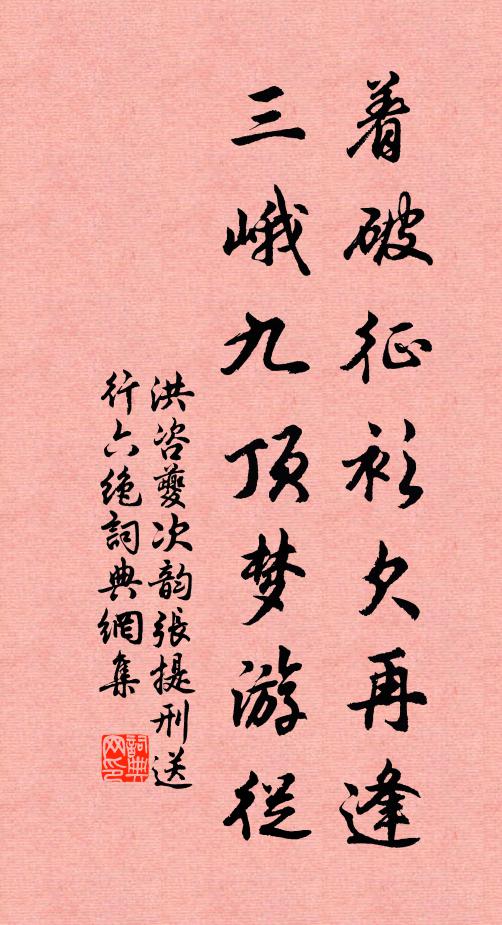 着破征衫欠再逢
三峨九顶梦游从
洪咨夔次韵張提刑送
行六绝詞典網集
詞典
网印